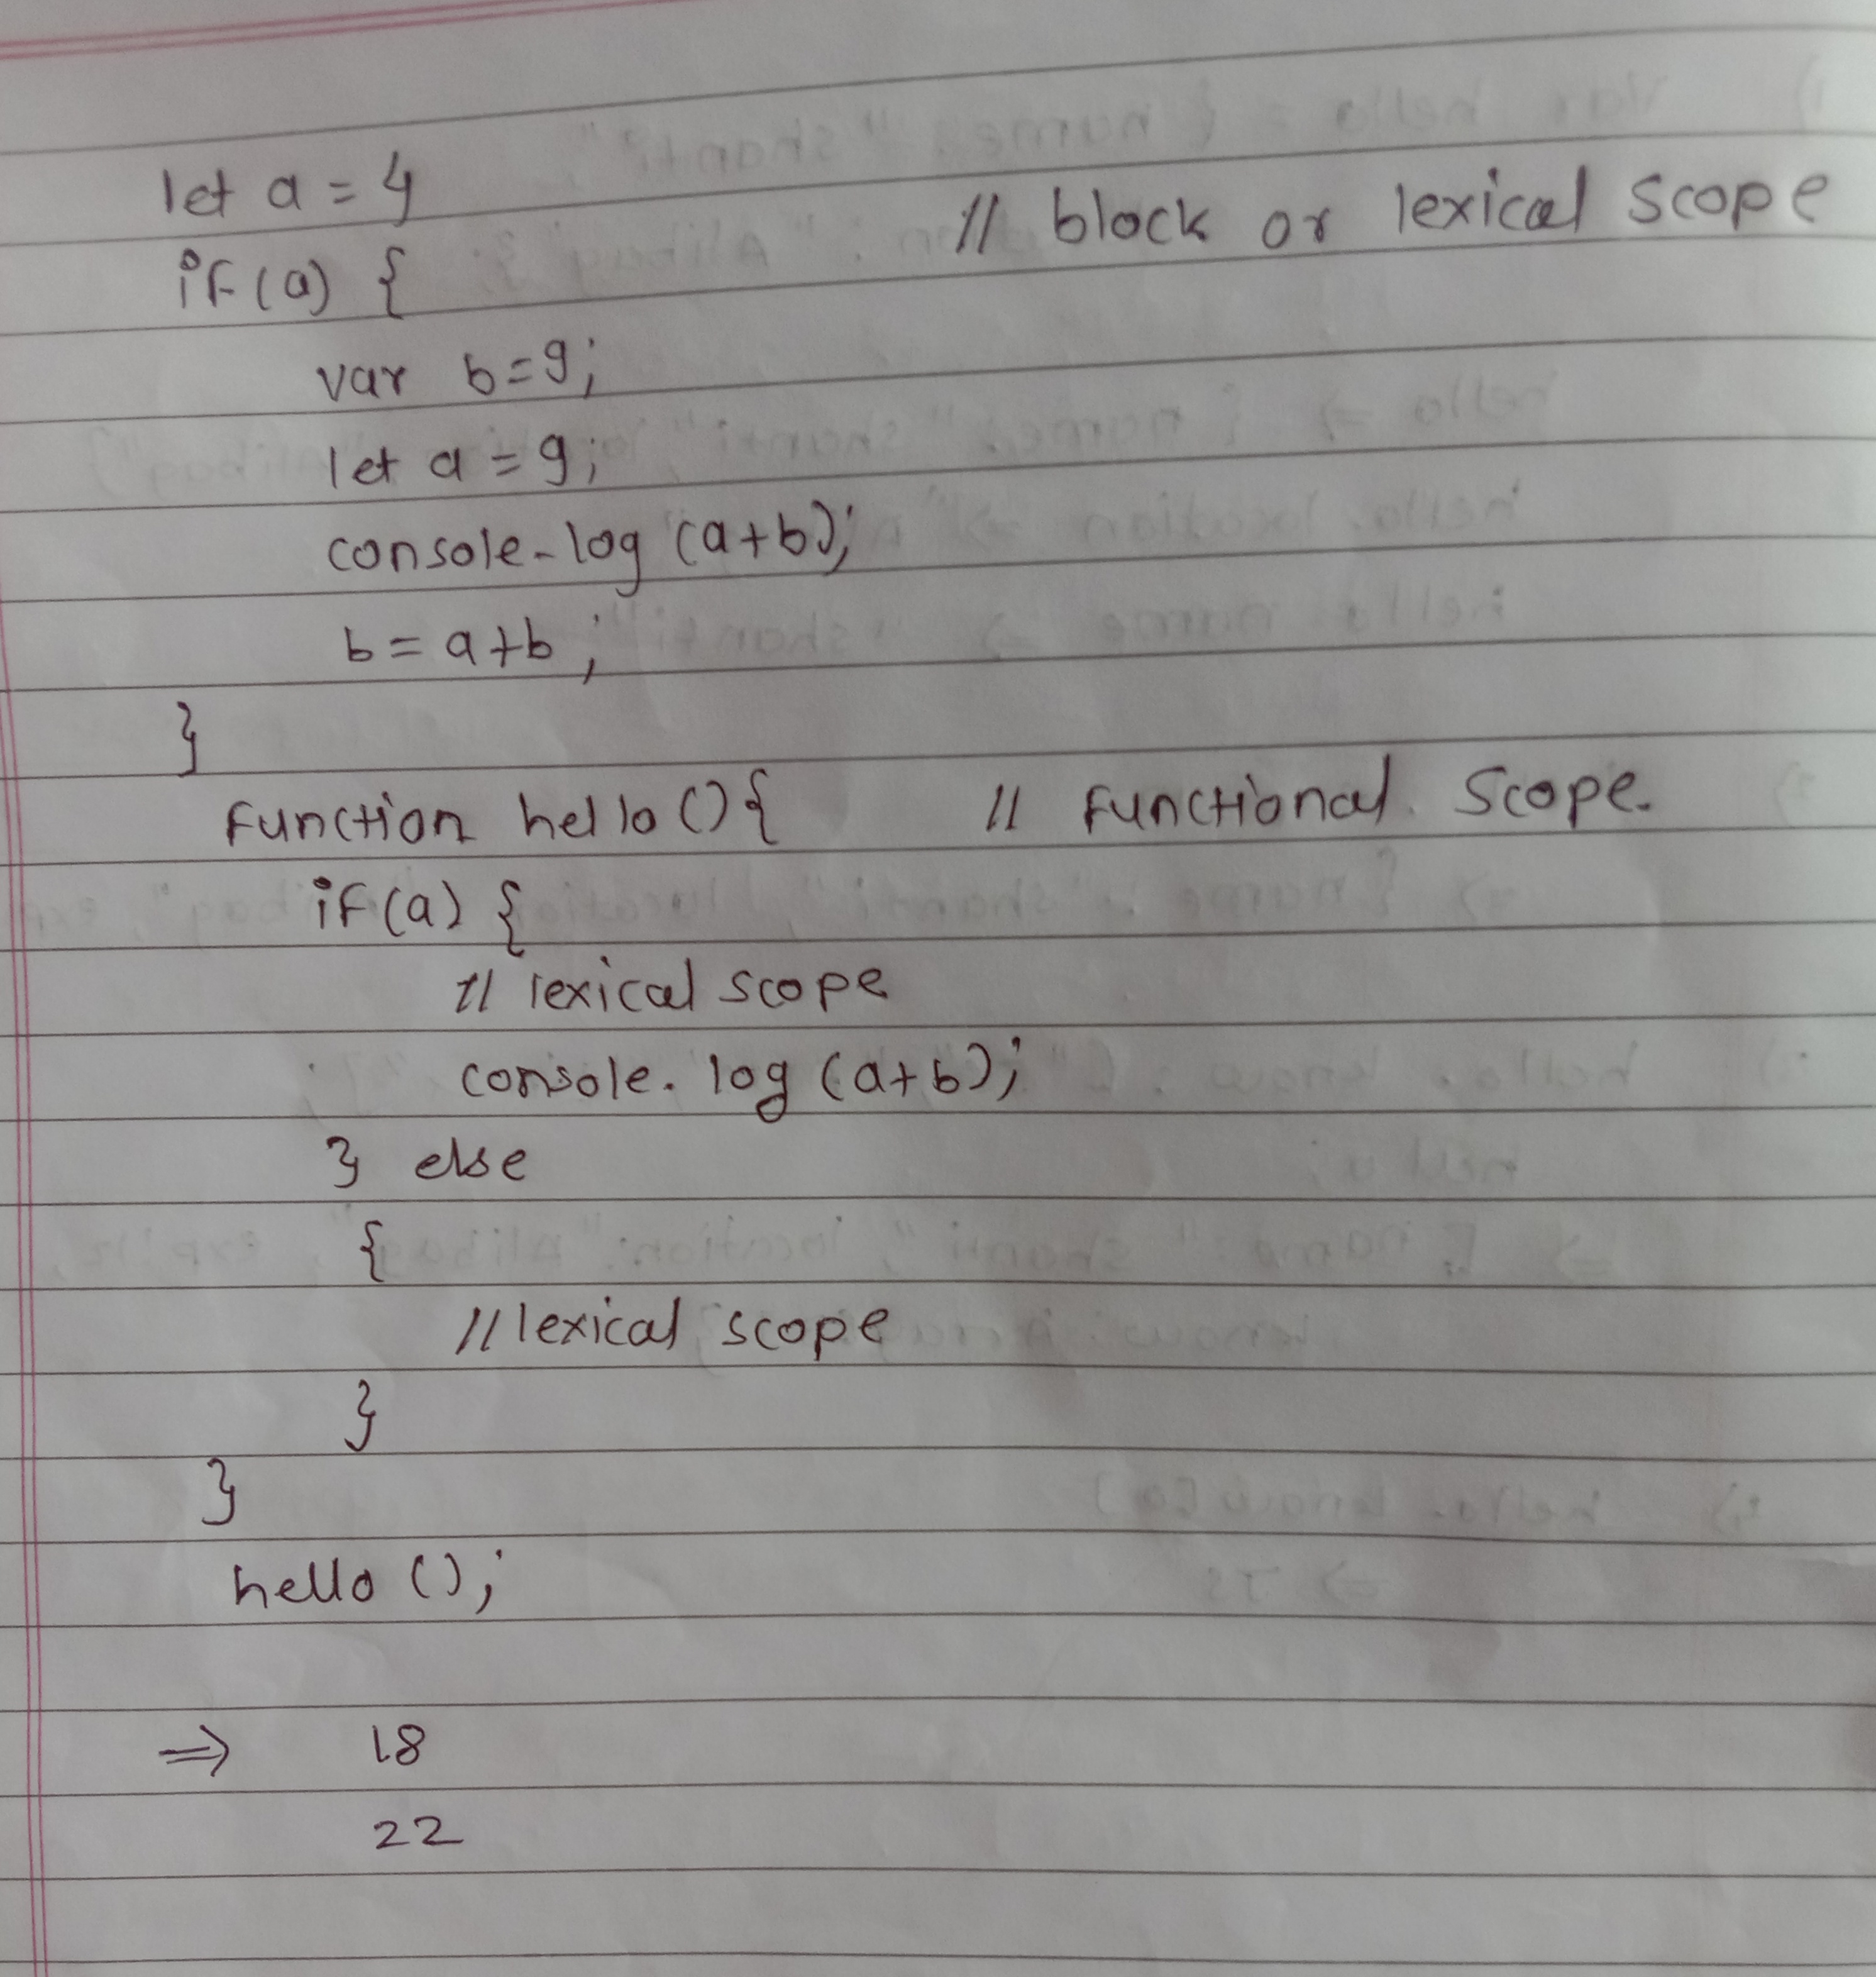 let a = 4
// block or lexical scope
if(a) {
var b=9;
let a =9;
console.log (a+b);
b= a+b ;
}
function hello () { // functional scope.
if(a) {
// lexical scope
console. log (a+b);
} else
{
// lexical scope
}
}
hello ();
⇒ 18
22